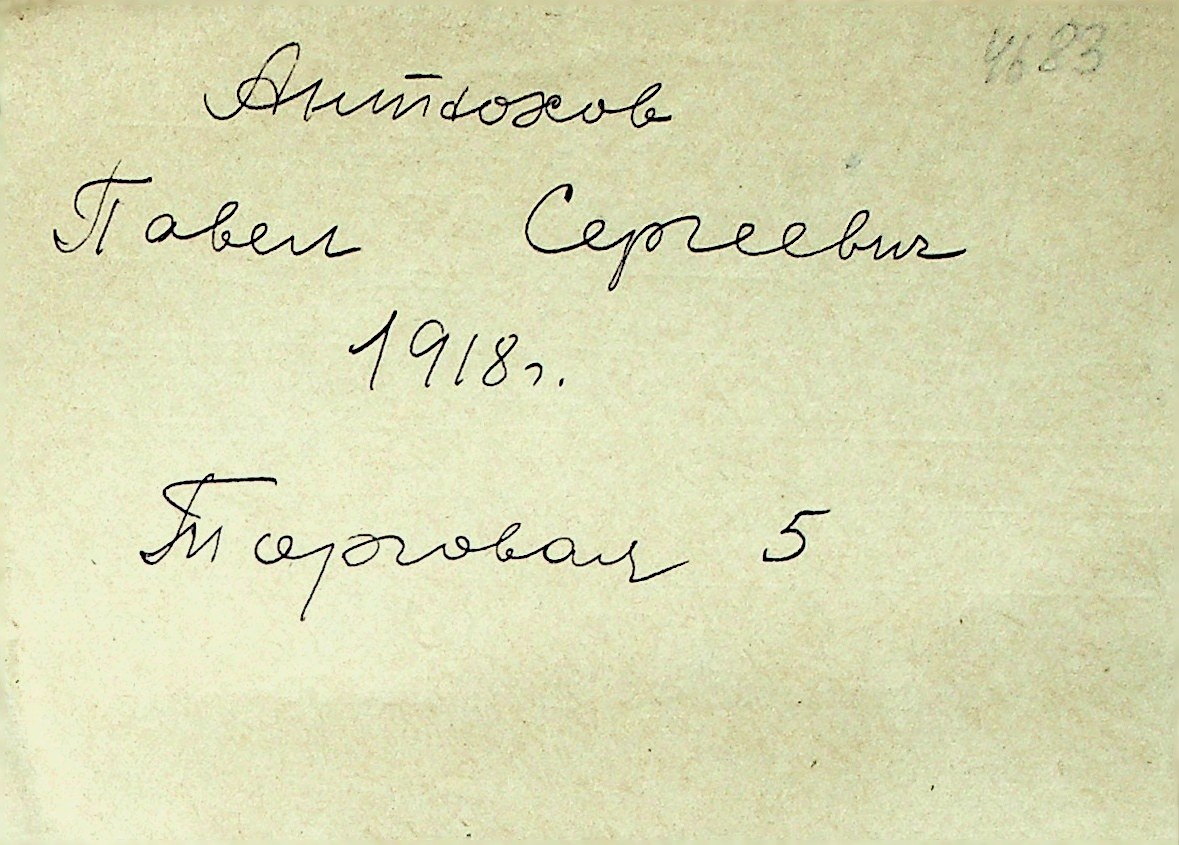 4683
Антюхов
Павел Сергеевич
1918г.
Торговая 5